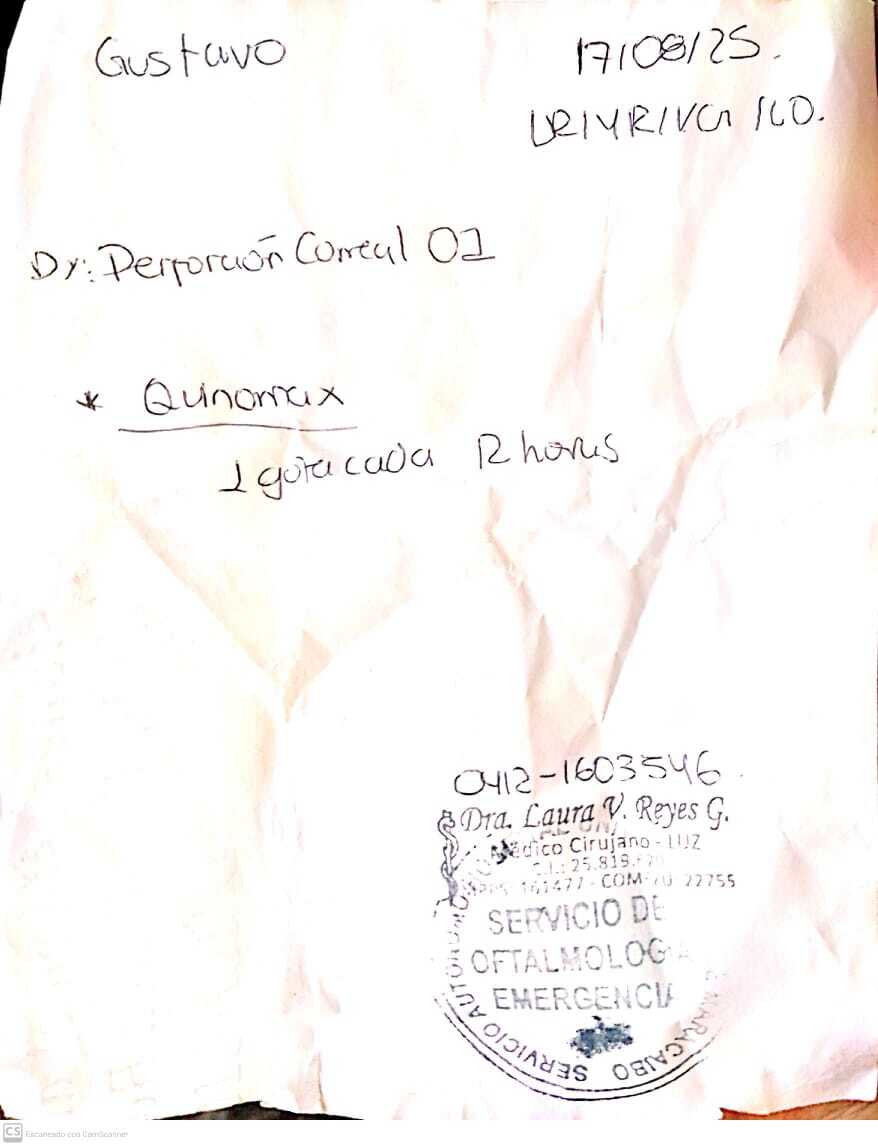 Gustavo
17/08/25.
Dx: Perforación Corneal OI
* Quinomax
1 gota cada 12 horas
0412-1603546
Dra. Laura V. Reyes G.
Médico Cirujano - LUZ
C.I.: 25.819.
161477 - COM 22755
SERVICIO DE
OFTALMOLOG
EMERGENCIA
SERVICIO AUTÓNOMO
MARACAIBO
Escaneado con CamScanner